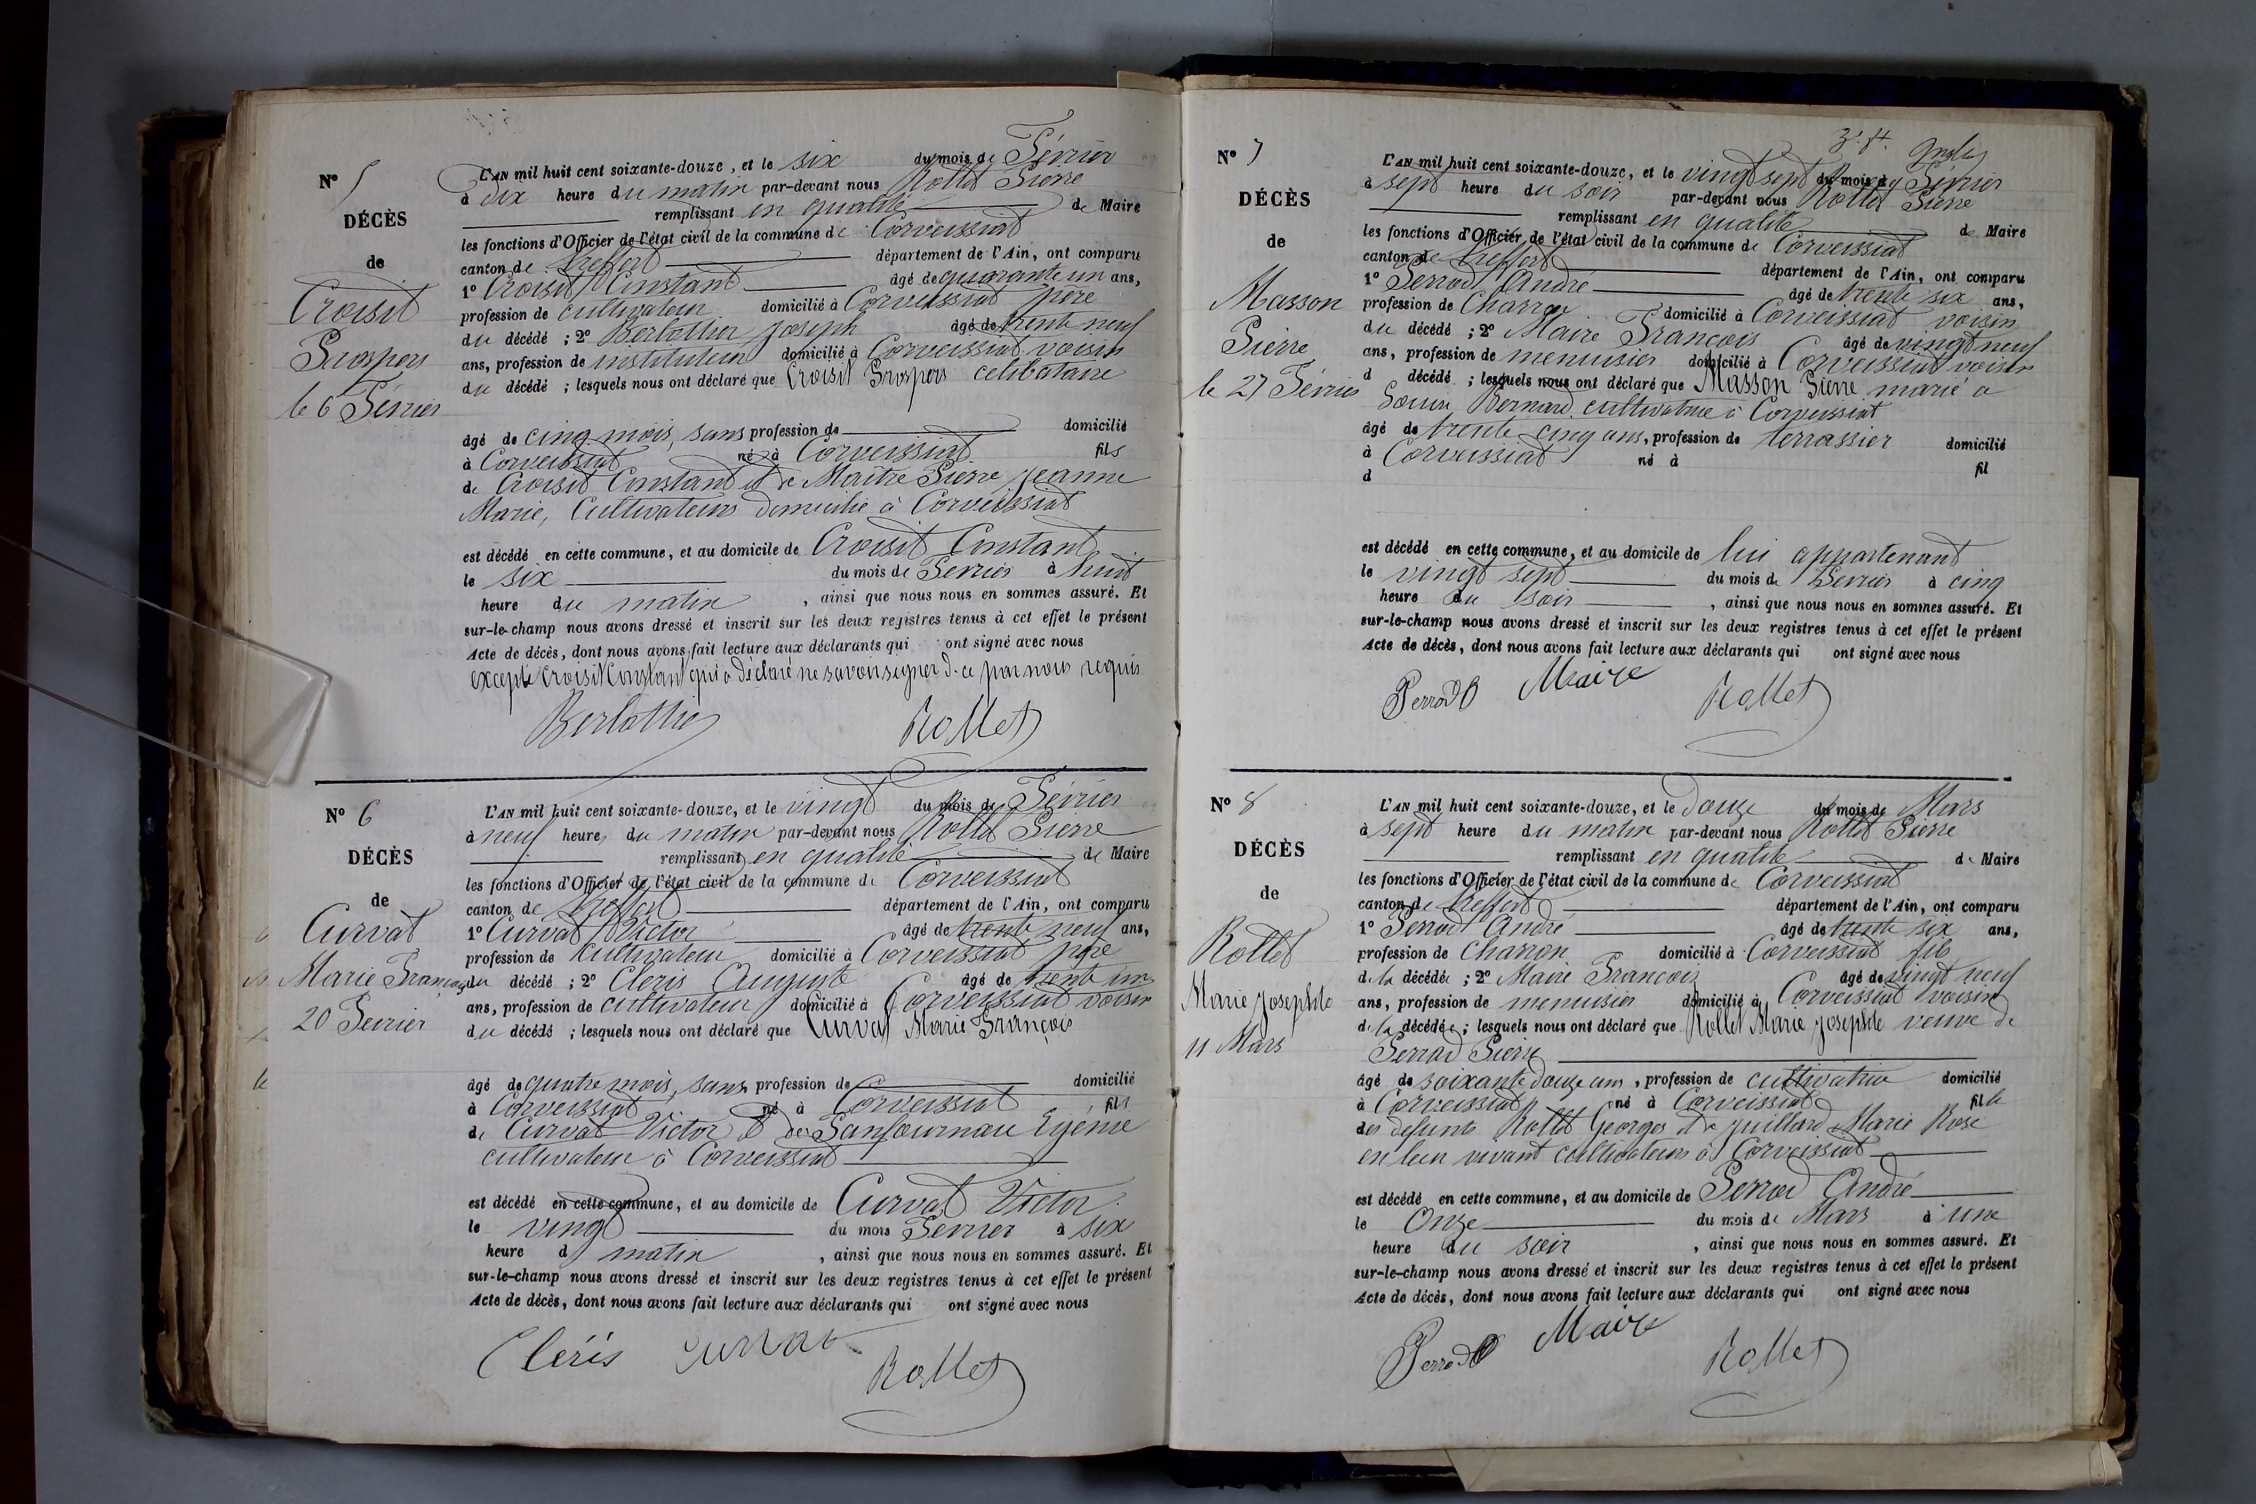 N° 5
DÉCÈS
de
Croisit
Prosper
le 6 Février
L'AN mil huit cent soixante-douze, et le six du mois de Février
à dix heure du matin par-devant nous Rollet Pierre
remplissant en qualité de Maire
les fonctions d'Officier de l'état civil de la commune de Corveissiat
canton de Treffort département de l'Ain, ont comparu
1° Croisit Constant âgé de quarante un ans,
profession de cultivateur domicilié à Corveissiat père
du décédé ; 2° Berlottier Joseph âgé de trente neuf
ans, profession de instituteur domicilié à Corveissiat voisin
du décédé ; lesquels nous ont déclaré que Croisit Prosper célibataire
âgé de cinq mois, sans profession de domicilié
à Corveissiat né à Corveissiat fils
de Croisit Constant et de Maitre Pierre Jeanne
Marie, Cultivateurs domicilié à Corveissiat
est décédé en cette commune, et au domicile de Croisit Constant
le six du mois de Février à huit
heure du matin, ainsi que nous nous en sommes assuré. Et
sur-le-champ nous avons dressé et inscrit sur les deux registres tenus à cet effet le présent
Acte de décès, dont nous avons fait lecture aux déclarants qui ont signé avec nous
excepté Croisit Constant qui a déclaré ne savoir signer de ce par nous requis
Berlottier Rollet
N° 6
DÉCÈS
de
Curvat
Marie François
20 Février
L'AN mil huit cent soixante-douze, et le vingt du mois de Février
à neuf heures du matin par-devant nous Rollet Pierre
remplissant en qualité de Maire
les fonctions d'Officier de l'état civil de la commune de Corveissiat
canton de Treffort département de l'Ain, ont comparu
1° Curvat Victor âgé de trente neuf ans,
profession de cultivateur domicilié à Corveissiat père
du décédé ; 2° Cléris Auguste âgé de trente un
ans, profession de cultivateur domicilié à Corveissiat voisin
du décédé ; lesquels nous ont déclaré que Curvat Marie François
âgé de quatre mois, sans profession de domicilié
à Corveissiat né à Corveissiat fils
de Curvat Victor et de
cultivateur à Corveissiat
est décédé en cette commune, et au domicile de Curvat Victor
le vingt du mois Février à six
heure d matin, ainsi que nous nous en sommes assuré. Et
sur-le-champ nous avons dressé et inscrit sur les deux registres tenus à cet effet le présent
Acte de décès, dont nous avons fait lecture aux déclarants qui ont signé avec nous
Cléris Curvat Rollet
N° 7
DÉCÈS
de
Masson
Pierre
le 27 Février
L'AN mil huit cent soixante-douze, et le vingt sept du mois de Février
à sept heure du soir par-devant nous Rollet Pierre
remplissant en qualité de Maire
les fonctions d'Officier de l'état civil de la commune de Corveissiat
canton de Treffort département de l'Ain, ont comparu
1° Perrod André âgé de trente six ans,
profession de Charron domicilié à Corveissiat voisin
du décédé ; 2° Maire François âgé de vingt neuf
ans, profession de menuisier domicilié à Corveissiat voisin
d décédé ; lesquels nous ont déclaré que Masson Pierre marié a
Bernard cultivatrice à Corveissiat
âgé de trente cinq ans, profession de terrassier domicilié
à Corveissiat né à fil
d
est décédé en cette commune, et au domicile de lui appartenant
le vingt sept du mois de Février à cinq
heure du soir, ainsi que nous nous en sommes assuré. Et
sur-le-champ nous avons dressé et inscrit sur les deux registres tenus à cet effet le présent
Acte de décès, dont nous avons fait lecture aux déclarants qui ont signé avec nous
Perrod Maire Rollet
N° 8
DÉCÈS
de
Rollet
Marie Josephte
11 Mars
L'AN mil huit cent soixante-douze, et le douze du mois de Mars
à sept heure du matin par-devant nous Rollet Pierre
remplissant en qualité de Maire
les fonctions d'Officier de l'état civil de la commune de Corveissiat
canton de Treffort département de l'Ain, ont comparu
1° Perrod André âgé de trente six ans,
profession de Charron domicilié à Corveissiat fils
de la décédée ; 2° Maire François âgé de vingt neuf
ans, profession de menuisier domicilié à Corveissiat voisin
de la décédée ; lesquels nous ont déclaré que Rollet Marie Josephte veuve de
Perrod Pierre
âgé de soixante douze ans, profession de cultivatrice domicilié
à Corveissiat né à Corveissiat fille
des défunts Rollet Georges et de Juillard Marie Rose
en leur vivant cultivateurs à Corveissiat
est décédé en cette commune, et au domicile de Perrod André
le Onze du mois de Mars à une
heure du soir, ainsi que nous nous en sommes assuré. Et
sur-le-champ nous avons dressé et inscrit sur les deux registres tenus à cet effet le présent
Acte de décès, dont nous avons fait lecture aux déclarants qui ont signé avec nous
Perrod Maire Rollet